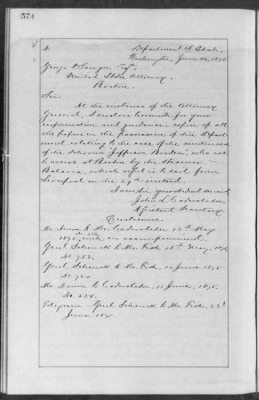 574
Department of State,
Washington, June 24, 1875
George P. Sanger, Esq.
United States Attorney,
Boston.
Sir:
At the instance of the Attorney
General, I enclose herewith for your
information and guidance, copies of all
the papers in the possession of the Depart-
ment relating to the case of the
of the Schooner Jefferson Borden, who are
to arrive at Boston by the Steamer
Batavia, which was to sail from
Liverpool on the 24th instant.
I am, Sir, your obedient servant
John L. Cadwalader
Assistant Secretary
Enclosures.
Mr. to Mr. Cadwalader 12th May
1875, with an accompaniment.
Genl. Schenck to Mr. Fish, May, 1875,
No 752.
Genl. Schenck to Mr. Fish, 10 June 1875
No 764
Mr. to Mr. Cadwalader, 10 June, 1875.
No. 434.
Telegram - Genl Schenck to Mr. Fish, 23d
June 1875.